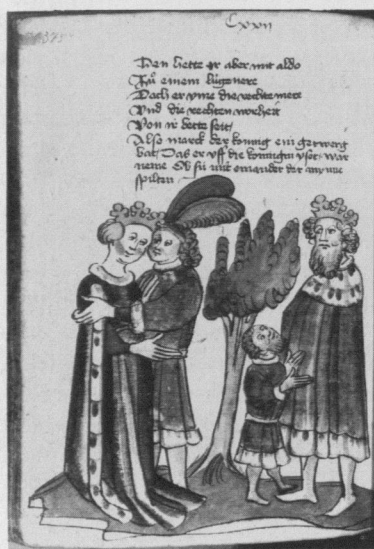 Cxxii
Den hette er aber mit also
Zů einem lügenere
Doch er yme die rechte mere
Vnd die rechten worheit
Von ir hette seit
Also marck der kunnig ein getwerg
bat Das er vff die kunnigin yset war
neme Ob sü mit einander der mynne
spilten